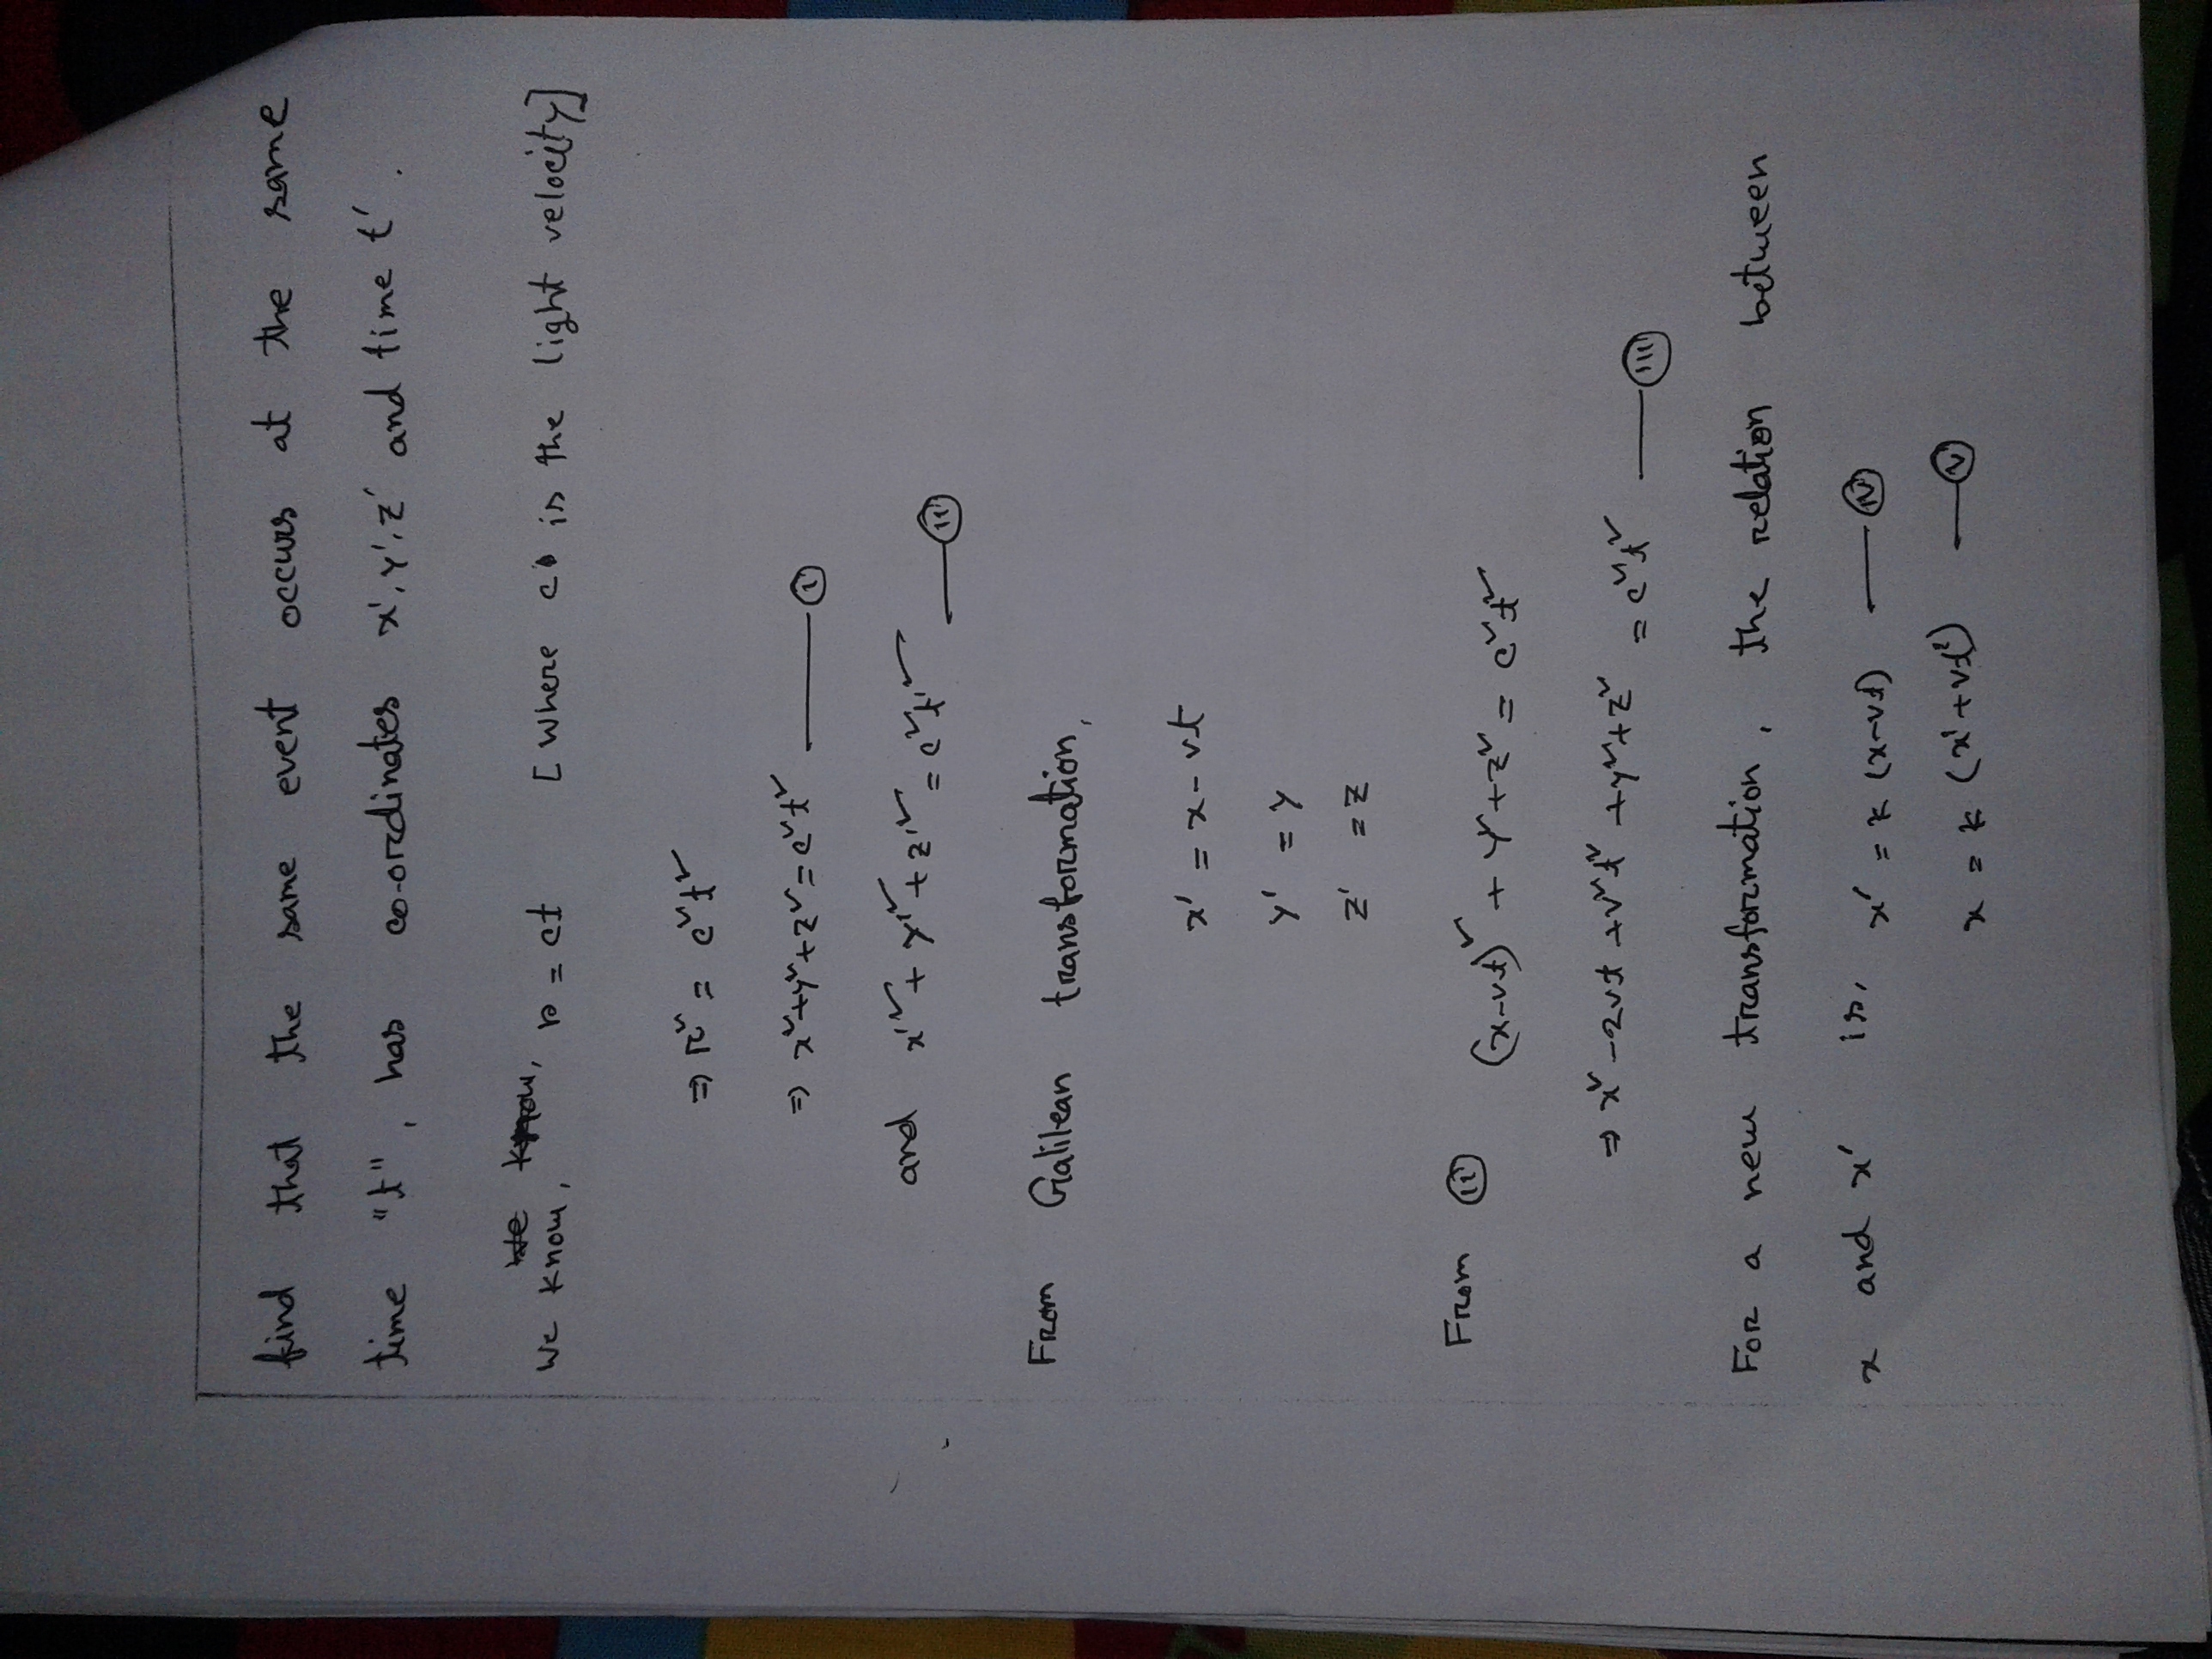 find that the same event occurs at the same
time "t", has co-ordinates x', y', z' and time t'.
We know,
We know, s = ct [Where c is the light velocity]
⇒ r² = c²t²
⇒ x²+y²+z² = c²t² —— (i)
and x'² + y'² + z'² = c²t'² —— (ii)
From Galilean transformation,
x' = x - vt
y' = y
z' = z
From (ii) (x-vt)² + y² + z² = c²t²
⇒ x² - 2vt + v²t² + y² + z² = c²t² —— (iii)
For a new transformation, the relation between
x and x' is, x' = k (x-vt) —— (iv)
x = k (x' + vt') —— (v)